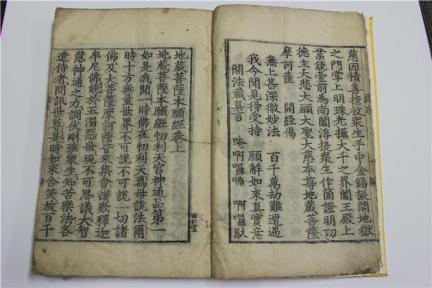 慈因積善誓救衆生手中金錫振開地獄
之門掌上明珠光攝大千之界閻王殿上
業鏡臺前爲南閻浮提衆生作箇證明功
德主大悲大願大聖大慈本尊地藏菩薩
摩訶薩 開經偈
無上甚深微妙法 百千萬劫難遭遇
我今聞見得受持 願解如來真實意
開法藏真言 唵 阿囉喃 阿囉馱
地藏菩薩本願經卷上
地藏菩薩本願經忉利天宮神通品第一
如是我聞一時佛在忉利天爲母說法爾
時十方無量世界不可說不可說一切諸
佛及大菩薩摩訶薩皆來集會讃歎釋迦
牟尼佛能於五濁惡世現不可思議大智
慧神通之力調伏剛強衆生知苦樂法各
遣侍者問訊世尊是時如來含笑放百千